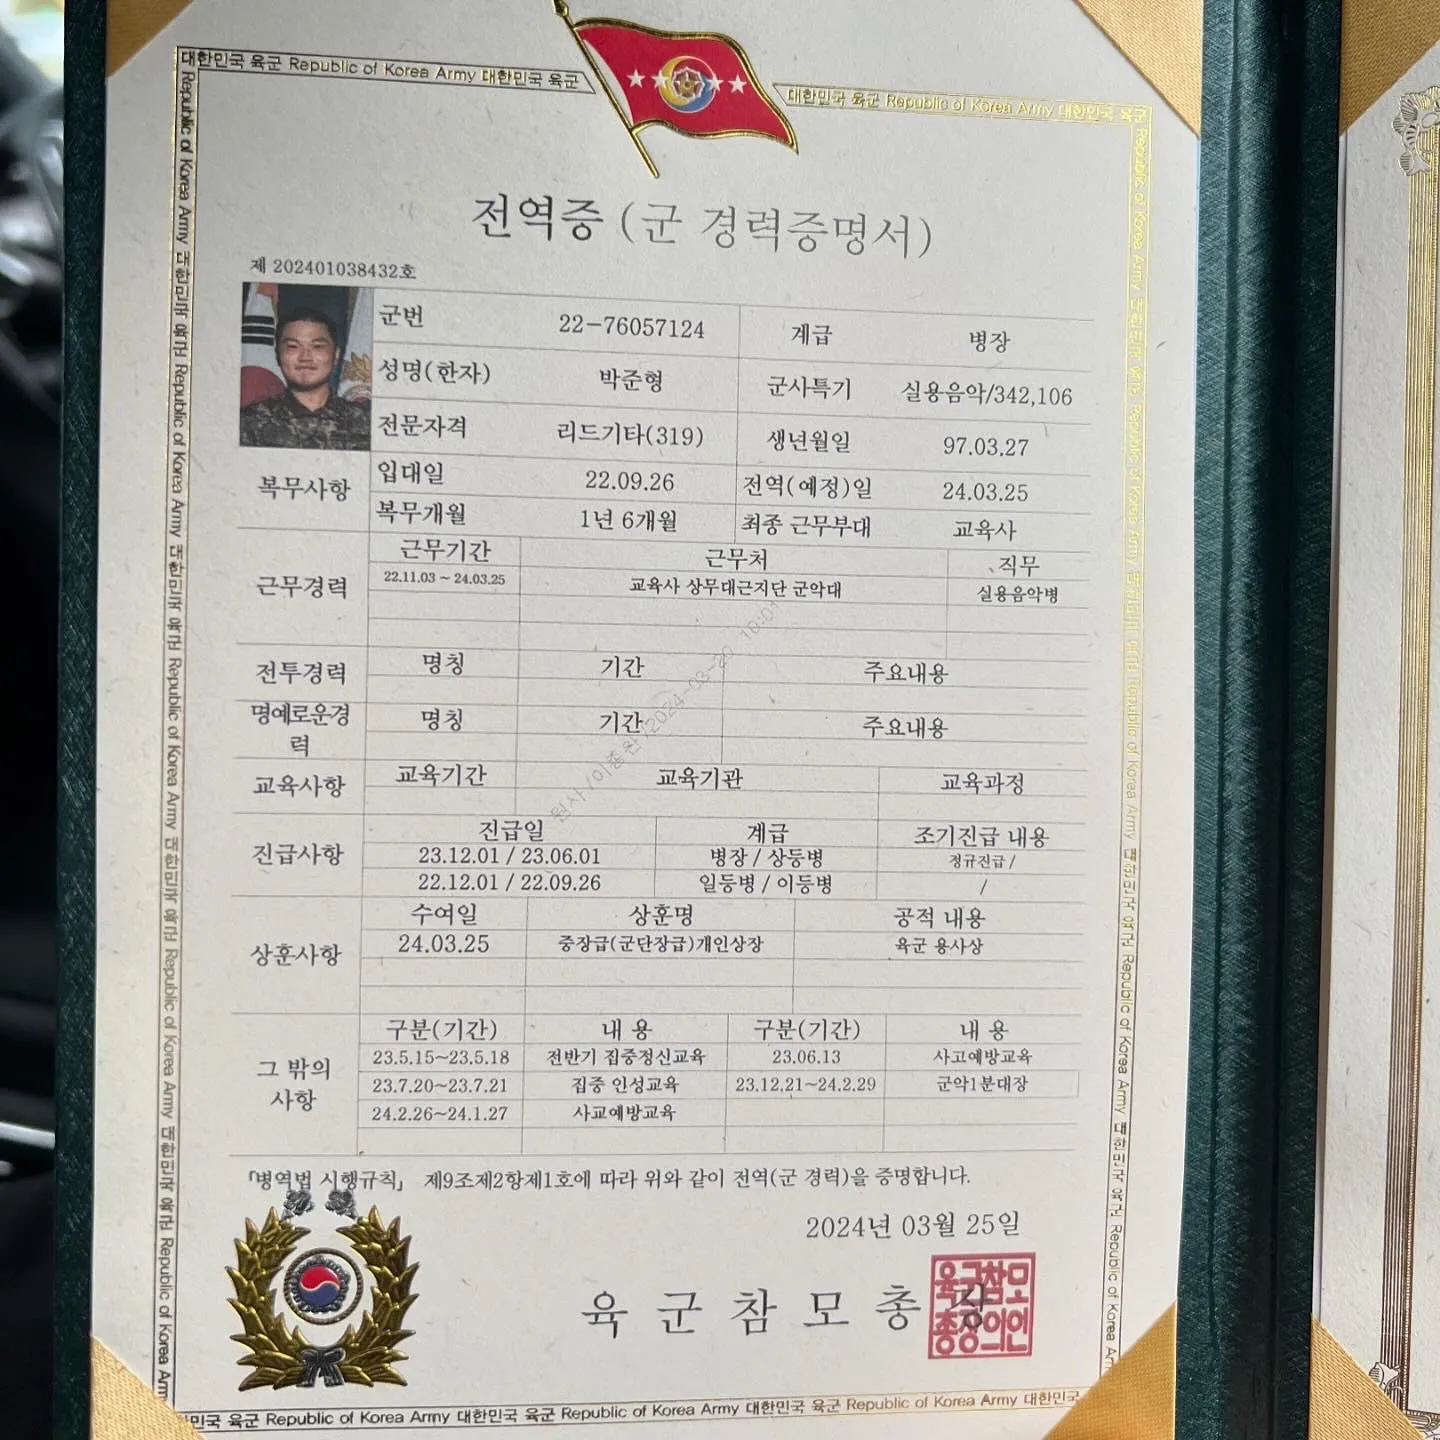 대한민국 육군 Republic of Korea Army 대한민국 육군
대한민국 육군 Republic of Korea Army 대한민국 육군
전역증 (군 경력증명서)
제 202401038432호
군번 22-76057124 계급 병장
성명(한자) 박준형 군사특기 실용음악/342,106
전문자격 리드기타(319) 생년월일 97.03.27
복무사항 입대일 22.09.26 전역(예정)일 24.03.25
복무개월 1년 6개월 최종 근무부대 교육사
근무경력 근무기간 근무처 직무
22.11.03 ~ 24.03.25 교육사 상무대근지단 군악대 실용음악병
전투경력 명칭 기간 주요내용
명예로운경력 명칭 기간 주요내용
교육사항 교육기간 교육기관 교육과정
진급사항 진급일 계급 조기진급 내용
23.12.01 / 23.06.01 병장 / 상등병 정규진급 /
22.12.01 / 22.09.26 일등병 / 이등병 /
상훈사항 수여일 상훈명 공적 내용
24.03.25 중장급(군단장급)개인상장 육군 용사상
그 밖의 사항 구분(기간) 내 용 구분(기간) 내 용
23.5.15~23.5.18 전반기 집중정신교육 23.06.13 사고예방교육
23.7.20~23.7.21 집중 인성교육 23.12.21~24.2.29 군악1분대장
24.2.26~24.1.27 사교예방교육
원사/이종완/2024-03-20 10:01
「병역법 시행규칙」 제9조제2항제1호에 따라 위와 같이 전역(군 경력)을 증명합니다.
2024년 03월 25일
육 군 참 모 총 장
육군참모
총장의인
민국 육군 Republic of Korea Army 대한민국 육군 Republic of Korea Army 대한민국 육군 Republic of Korea Army 대한민국 육군